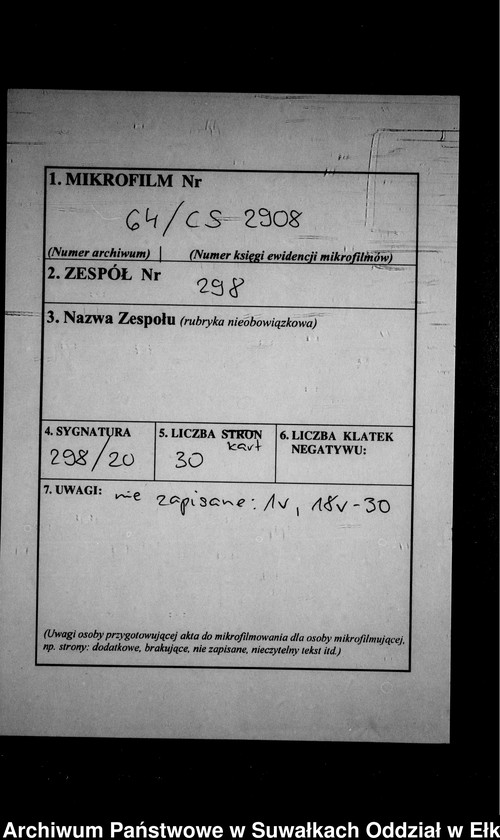 1. MIKROFILM Nr
64/CS-2908
(Numer archiwum) | (Numer księgi ewidencji mikrofilmów)
2. ZESPÓŁ Nr
298
3. Nazwa Zespołu (rubryka nieobowiązkowa)
4. SYGNATURA
298/20
5. LICZBA STRON
kart
30
6. LICZBA KLATEK
NEGATYWU:
7. UWAGI: nie zapisane: 1v, 18v-30
(Uwagi osoby przygotowującej akta do mikrofilmowania dla osoby mikrofilmującej,
np. strony: dodatkowe, brakujące, nie zapisane, nieczytelny tekst itd.)
Archiwum Państwowe w Suwałkach Oddział w Ełk